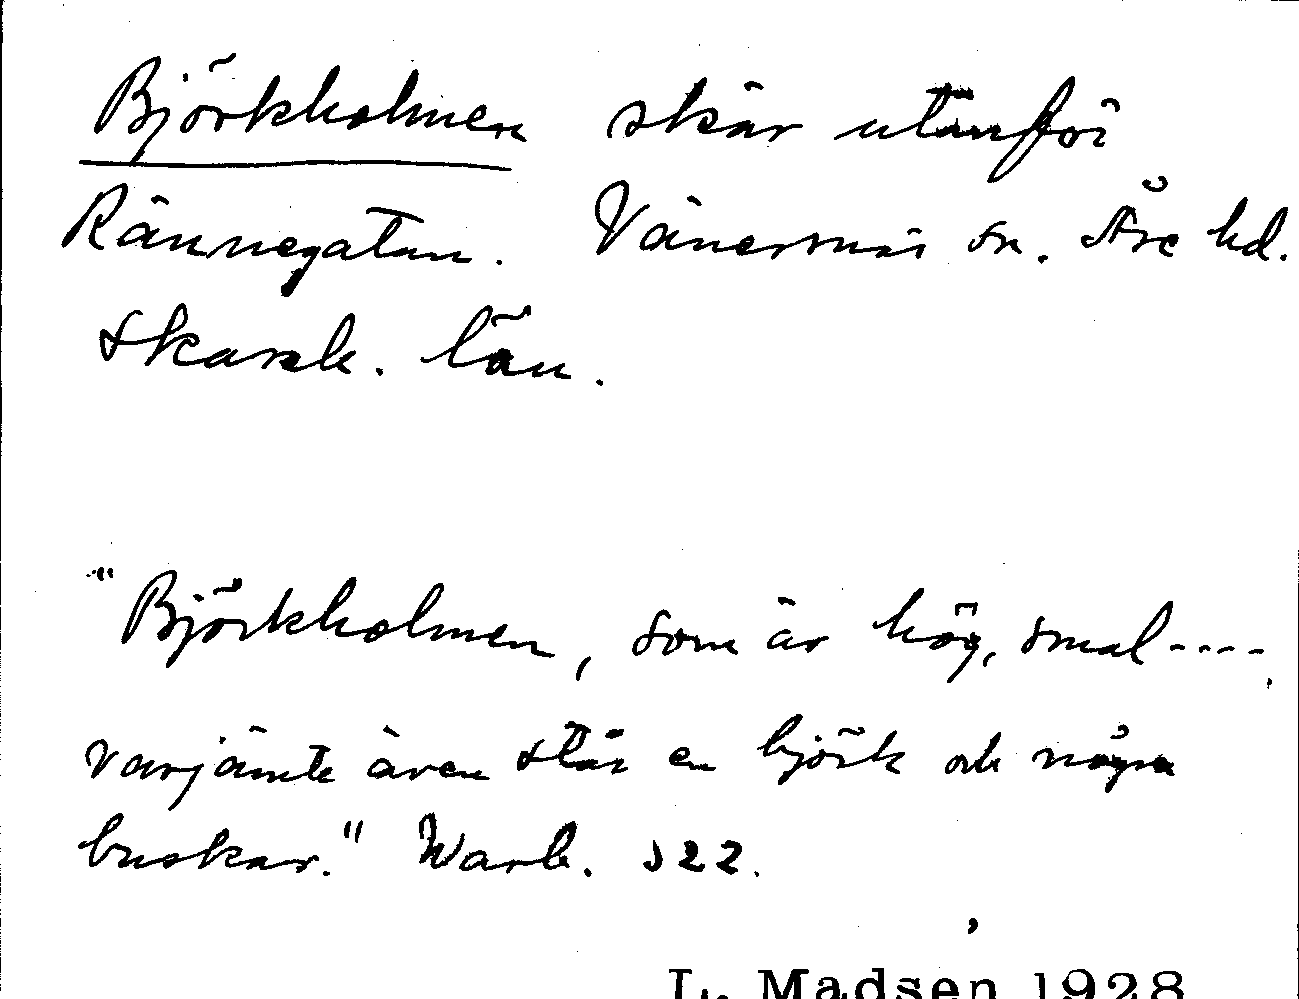 Björkholmen skär utanför
Rännegatan. Vänersnäs sn. Åse hd.
Skarab. län.
"Björkholmen, som är hög, smal ----,
varjämte även står en björk och några
buskar." Warb. 522.
L. Madsen 1928